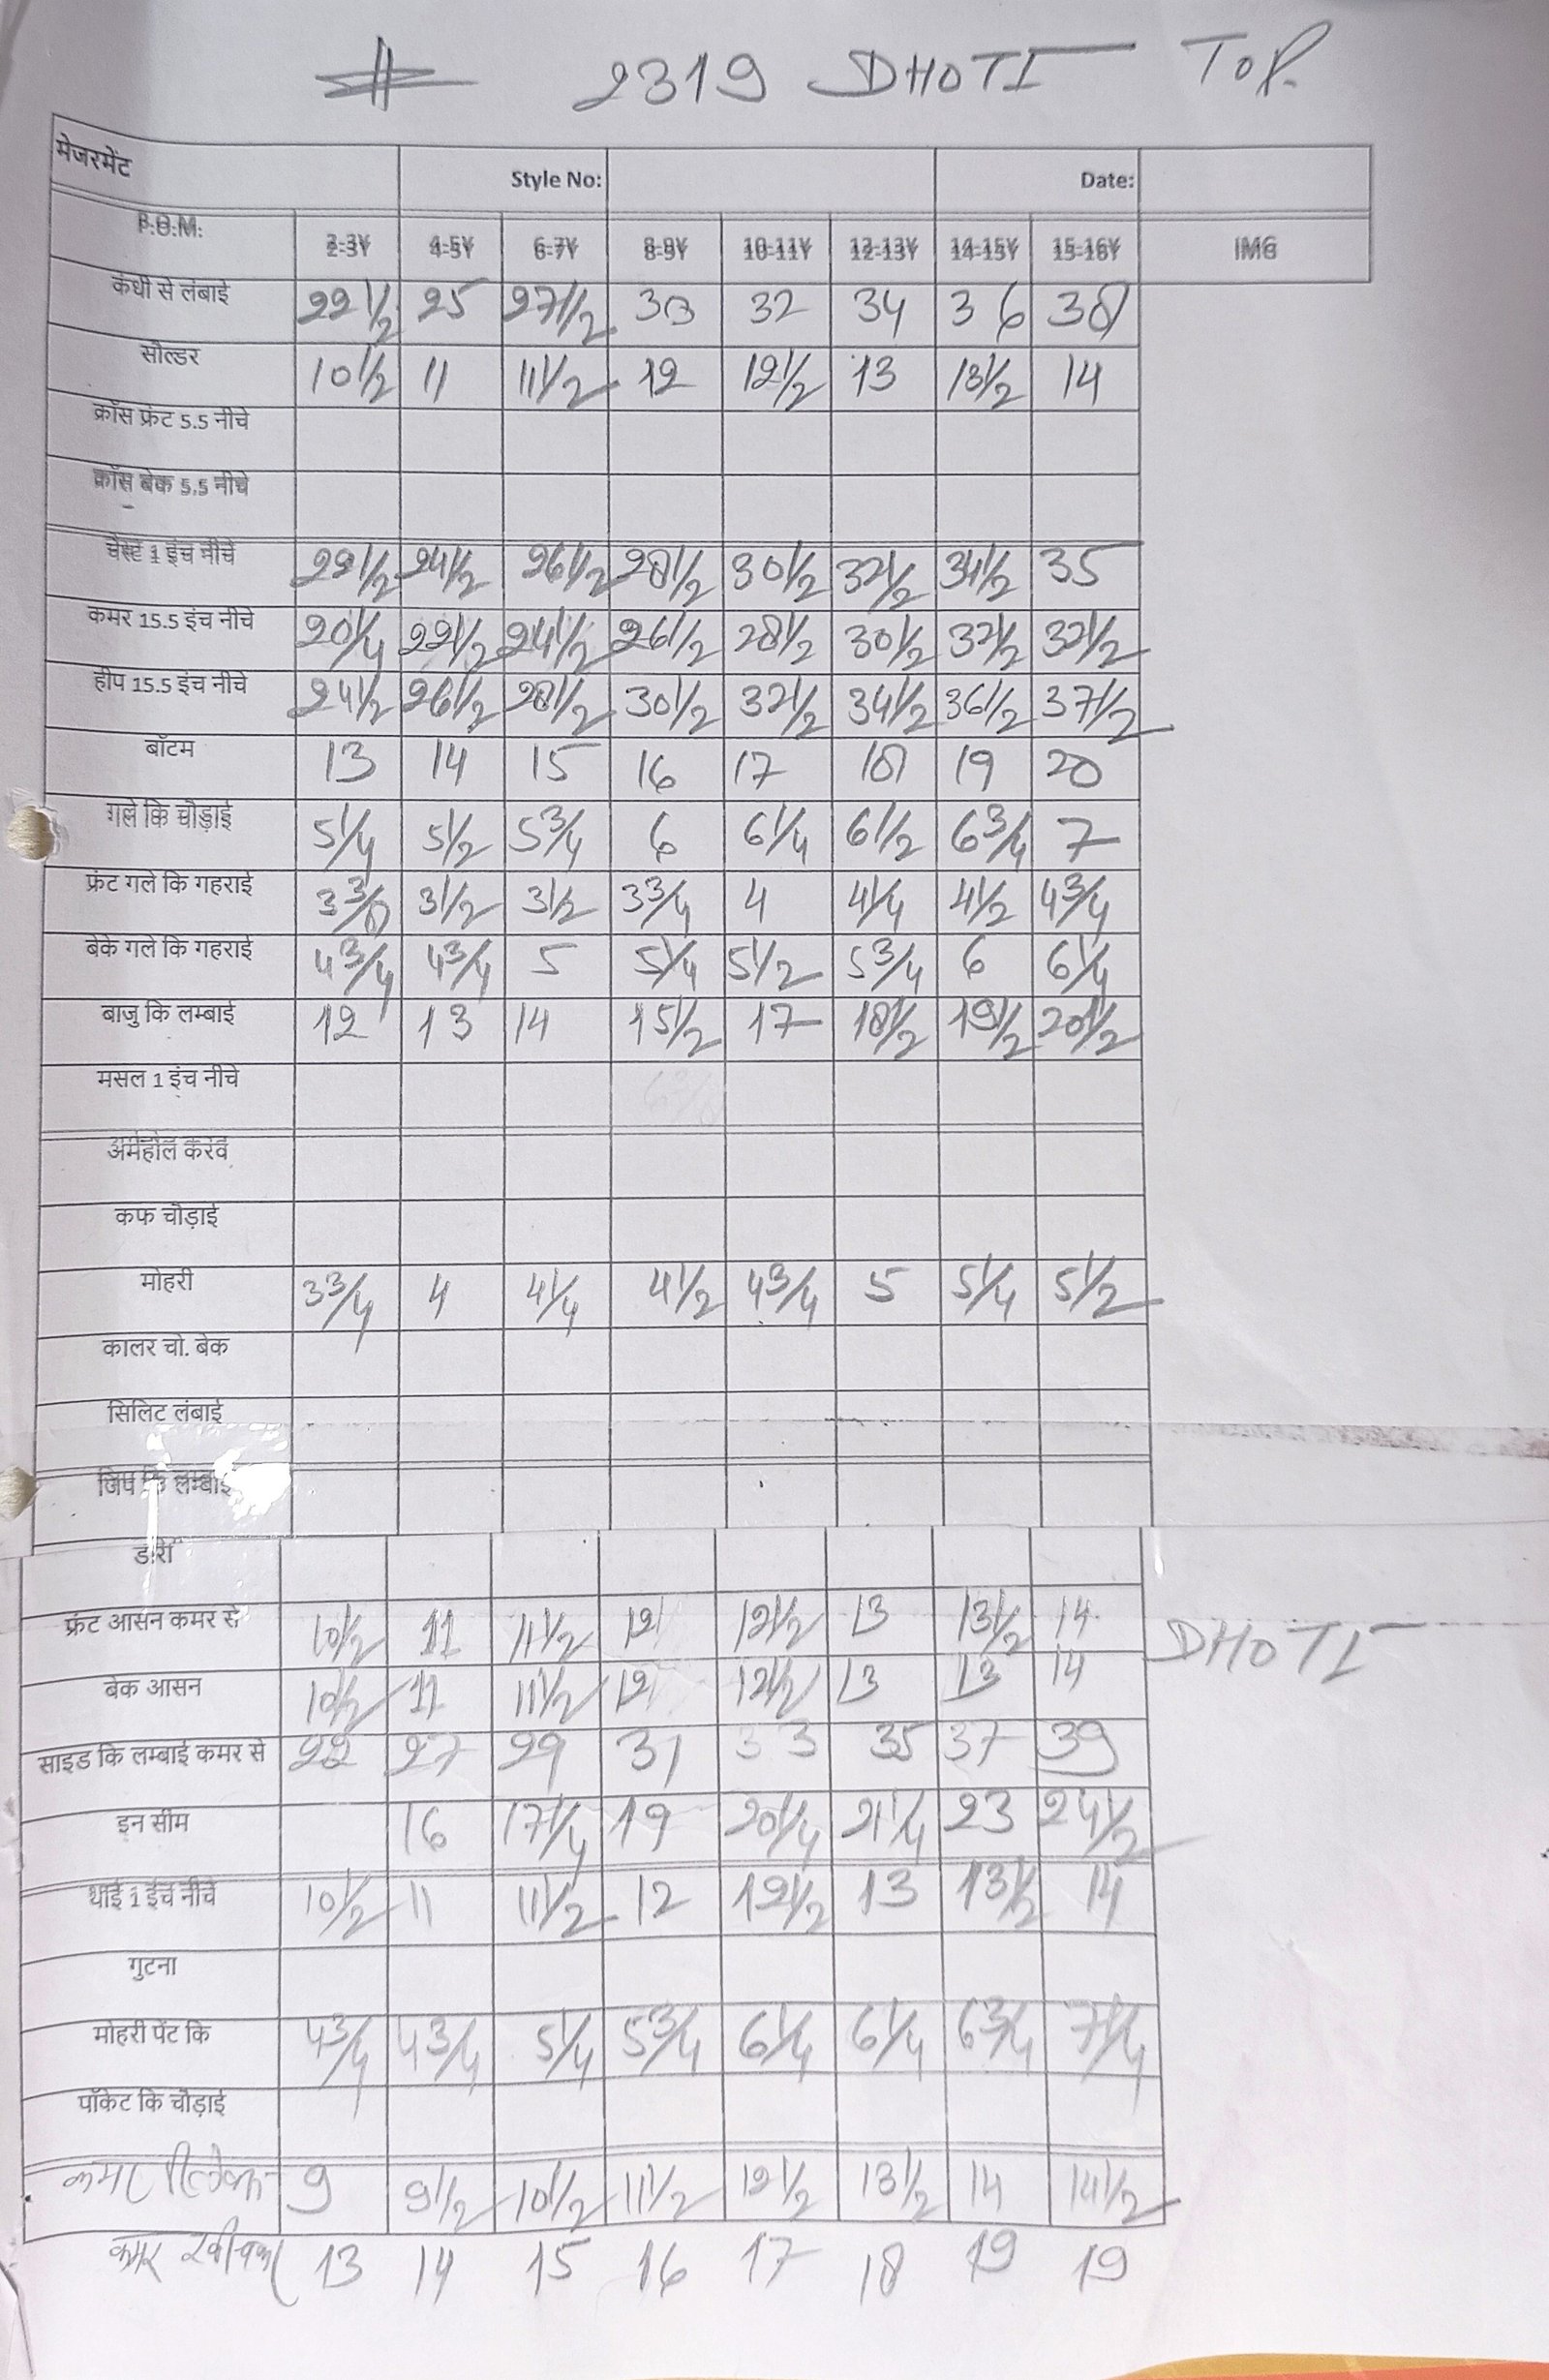 # 2319 DHOTI TOP.
मेजरमेंट Style No: Date:
P.O.M. 2-3Y 4-5Y 6-7Y 8-9Y 10-11Y 12-13Y 14-15Y 15-16Y IMG
कंधी से लंबाई 22 1/2 25 27 1/2 30 32 34 36 38
सोल्डर 10 1/2 11 11 1/2 12 12 1/2 13 13 1/2 14
क्रॉस फ्रंट 5.5 नीचे
क्रॉस बेक 5.5 नीचे
चेस्ट 1 इंच नीचे 22 1/2 24 1/2 26 1/2 28 1/2 30 1/2 32 1/2 34 1/2 35
कमर 15.5 इंच नीचे 20 1/4 22 1/2 24 1/2 26 1/2 28 1/2 30 1/2 32 1/2 32 1/2
हीप 15.5 इंच नीचे 24 1/2 26 1/2 28 1/2 30 1/2 32 1/2 34 1/2 36 1/2 37 1/2
बॉटम 13 14 15 16 17 18 19 20
गले कि चौड़ाई 5 1/4 5 1/2 5 3/4 6 6 1/4 6 1/2 6 3/4 7
फ्रंट गले कि गहराई 3 3/8 3 1/2 3 1/2 3 3/4 4 4 1/4 4 1/2 4 3/4
बेके गले कि गहराई 4 3/4 4 3/4 5 5 1/4 5 1/2 5 3/4 6 6 1/4
बाजु कि लम्बाई 12 13 14 15 1/2 17 18 1/2 19 1/2 20 1/2
मसल 1 इंच नीचे
अर्महोल करव
कफ चौड़ाई
मोहरी 3 3/4 4 4 1/4 4 1/2 4 3/4 5 5 1/4 5 1/2
कालर चो. बेक
सिलिट लंबाई
जिप कि लम्बाई
डोरी
फ्रंट आसन कमर से 10 1/2 11 11 1/2 12 12 1/2 13 13 1/2 14 DHOTI
बेक आसन 10 1/2 11 11 1/2 12 12 1/2 13 13 14
साइड कि लम्बाई कमर से 22 27 29 31 33 35 37 39
इन सीम 16 17 1/4 19 20 1/4 21 1/4 23 24 1/2
थाई 1 इंच नीचे 10 1/2 11 11 1/2 12 12 1/2 13 13 1/2 14
गुटना
मोहरी पेंट कि 4 3/4 4 3/4 5 1/4 5 3/4 6 1/4 6 1/4 6 3/4 7 1/4
पॉकेट कि चौड़ाई
कमर 9 9 1/2 10 1/2 11 1/2 12 1/2 13 1/2 14 14 1/2
कमर खीचकर 13 14 15 16 17 18 19 19